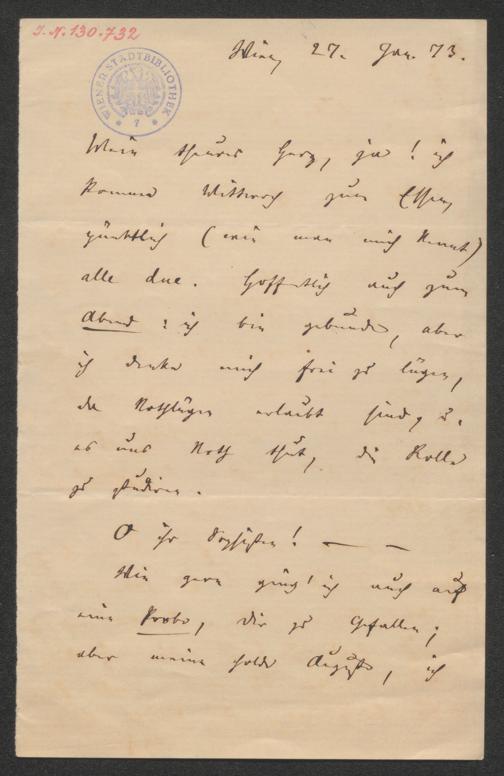 I.N. 130.732
WIENER STADTBIBLIOTHEK
7
Wien, 27. Jan. 73.
Mein theures Herz, ja! ich
komme Mittwoch zum Essen,
pünktlich (wie man mich kennt)
alle due. Hoffentlich auch zum
Abend: ich bin gebunden, aber
ich denke mich frei zu lügen,
da Nothlügen erlaubt sind, u.
es uns Noth thut, die Rolle
zu studiren.
O ihr Sophisten! — —
Wie gern ging' ich auch auf
eine Probe, dir zu Gefallen;
aber meine holde Auguste, ich